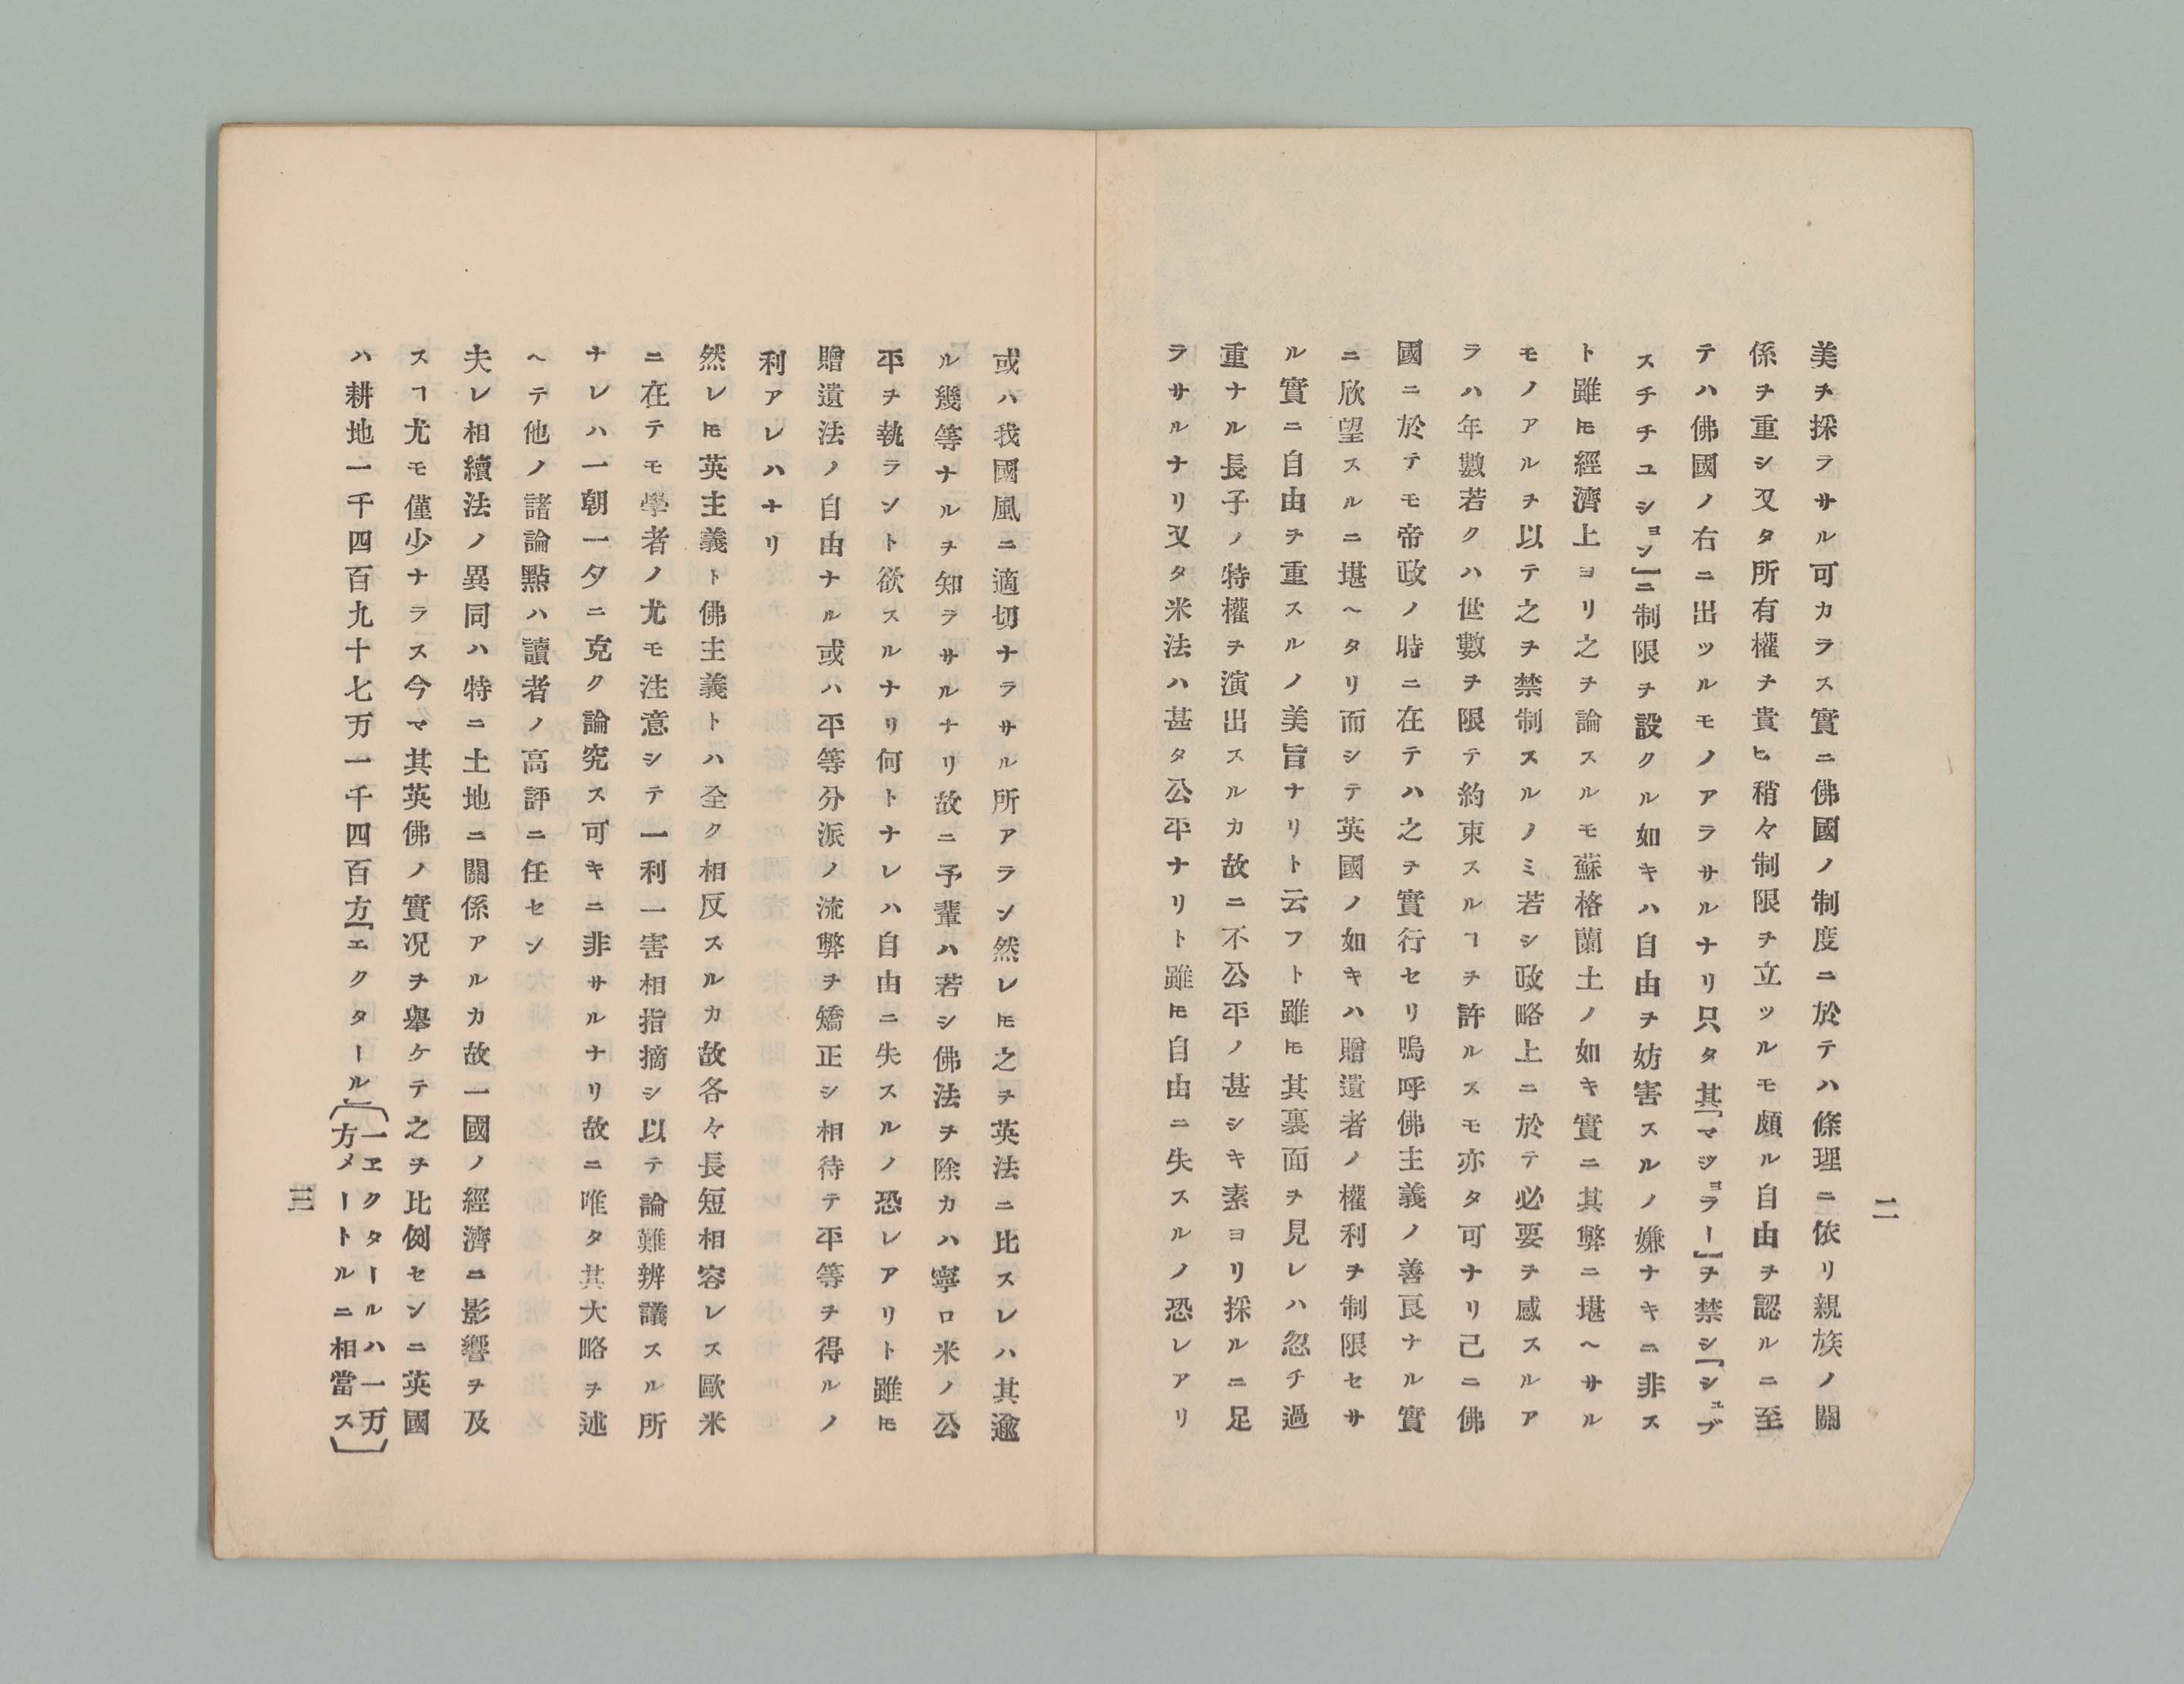 二
美ヲ採ラサル可カラス實ニ佛國ノ制度ニ於テハ條理ニ依リ親族ノ關
係ヲ重シ又タ所有權ヲ貴ヒ稍々制限ヲ立ツルモ頗ル自由ヲ認ルニ至
テハ佛國ノ右ニ出ツルモノアラサルナリ只タ其「マジョラー」ヲ禁シ「シュブ
スチチユシヨン」ニ制限ヲ設クル如キハ自由ヲ妨害スルノ嫌ナキニ非ス
ト雖𪜈經濟上ヨリ之ヲ論スルモ蘇格蘭土ノ如キ實ニ其弊ニ堪ヘサル
モノアルヲ以テ之ヲ禁制スルノミ若シ政略上ニ於テ必要ヲ感スルア
ラハ年數若クハ世數ヲ限テ約束スルヿヲ許ルスモ亦タ可ナリ己ニ佛
國ニ於テモ帝政ノ時ニ在テハ之ヲ實行セリ嗚呼佛主義ノ善良ナル實
ニ欣望スルニ堪ヘタリ而シテ英國ノ如キハ贈遺者ノ權利ヲ制限セサ
ル實ニ自由ヲ重スルノ美旨ナリト云フト雖𪜈其裏面ヲ見レハ忽チ過
重ナル長子ノ特權ヲ演出スルカ故ニ不公平ノ甚シキ素ヨリ採ルニ足
ラサルナリ又タ米法ハ甚タ公平ナリト雖𪜈自由ニ失スルノ恐レアリ
或ハ我國風ニ適切ナラサル所アラン然レ𪜈之ヲ英法ニ比スレハ其逾
ル幾等ナルヲ知ラサルナリ故ニ予輩ハ若シ佛法ヲ除カハ寧ロ米ノ公
平ヲ執ラント欲スルナリ何トナレハ自由ニ失スルノ恐レアリト雖𪜈
贈遺法ノ自由ナル或ハ平等分派ノ流弊ヲ矯正シ相待テ平等ヲ得ルノ
利アレハナリ
然レ𪜈英主義ト佛主義トハ全ク相反スルカ故各々長短相容レス歐米
ニ在テモ學者ノ尤モ注意シテ一利一害相指摘シ以テ論難辨議スル所
ナレハ一朝一夕ニ克ク論究ス可キニ非サルナリ故ニ唯タ其大略ヲ述
ヘテ他ノ諸論點ハ讀者ノ高評ニ任セン
夫レ相續法ノ異同ハ特ニ土地ニ關係アルカ故一國ノ經濟ニ影響ヲ及
スヿ尤モ僅少ナラス今マ其英佛ノ實況ヲ擧ケテ之ヲ比例センニ英國
ハ耕地一千四百九十七万一千四百方「エクタール」（一ヱクタールハ一万方メートルニ相當ス）
三